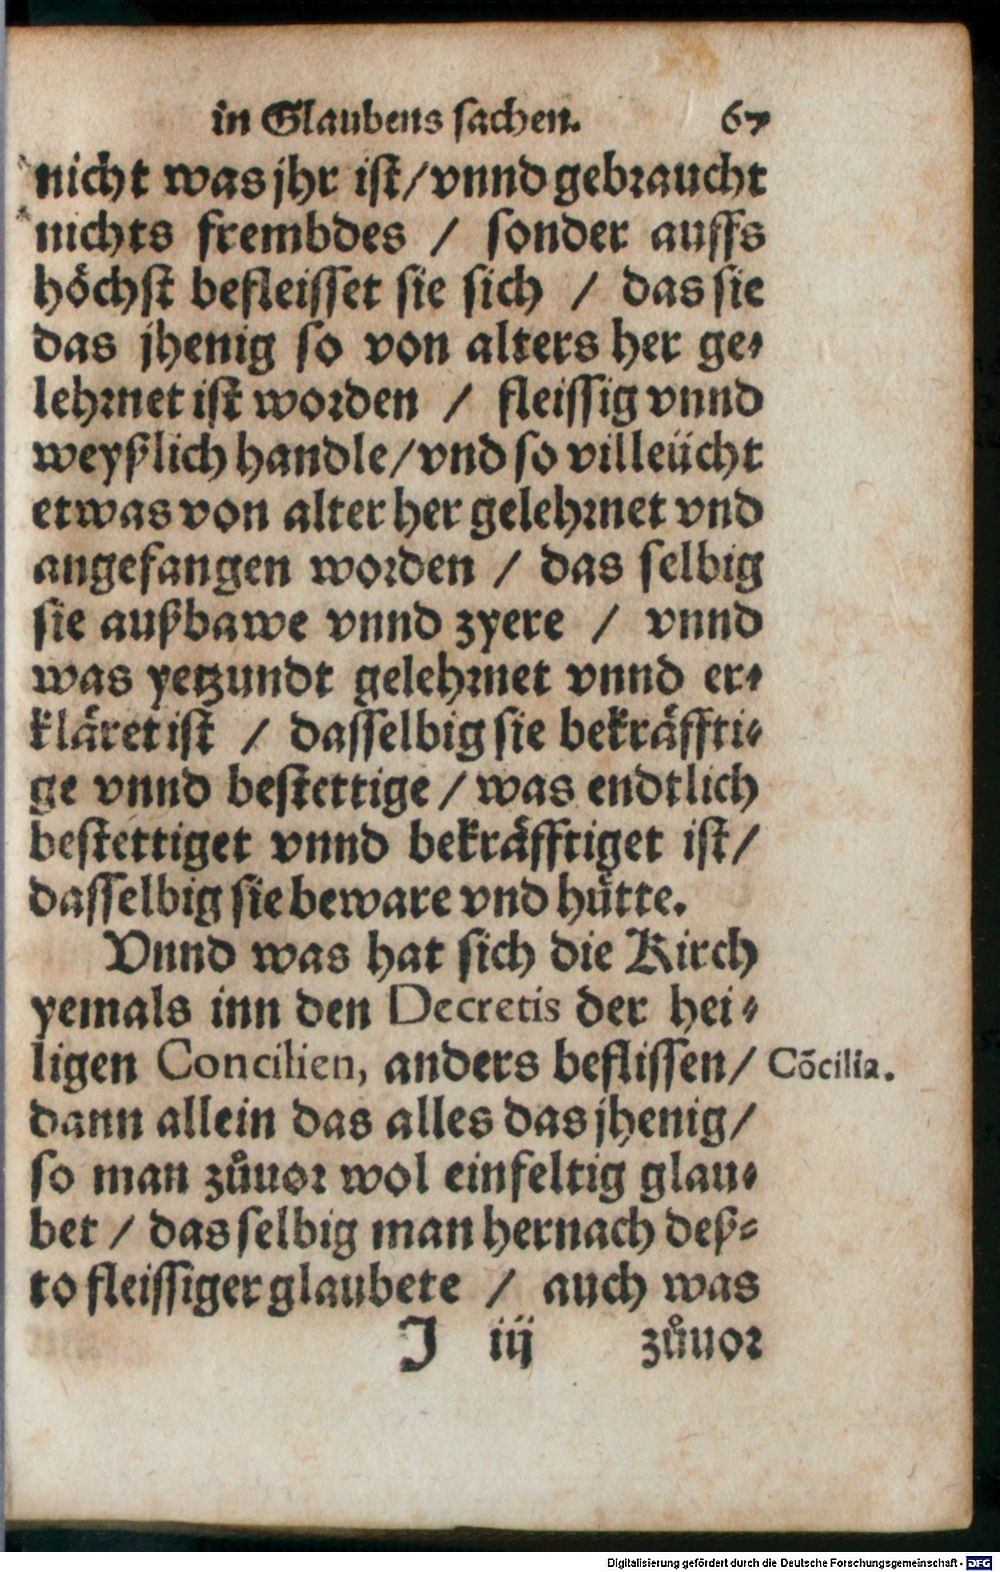 in Glaubens sachen. 67
nicht was jhr ist/ vnnd gebraucht
nichts frembdes / sonder auffs
höchst befleisset sie sich / das sie
das jhenig so von alters her ge-
lehrnet ist worden / fleissig vnnd
weyßlich handle/ vnd so villeücht
etwas von alter her gelehrnet vnd
angefangen worden / das selbig
sie außbawe vnnd zyere / vnnd
was yetzundt gelehrnet vnnd er-
kläret ist / dasselbig sie bekräffti-
ge vnnd bestettige / was endtlich
bestettiget vnnd bekräfftiget ist/
dasselbig sie beware vnd hütte.
Vnnd was hat sich die Kirch
yemals inn den Decretis der hei-
ligen Concilien, anders beflissen/ Cõcilia.
dann allein das alles das jhenig/
so man zůuor wol einfeltig glau-
bet / das selbig man hernach deß-
to fleissiger glaubete / auch was
J iij zůuor
Digitalisierung gefördert durch die Deutsche Forschungsgemeinschaft - DFG